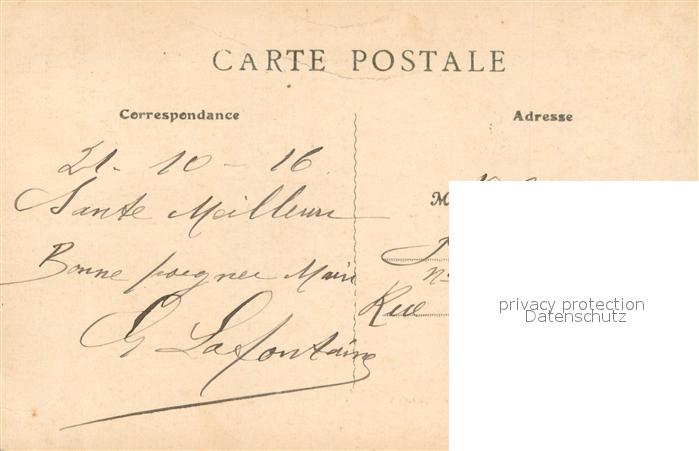 CARTE POSTALE
Correspondance
Adresse
21-10-16
Sante Meilleure
Bonne poignee Main
G Lafontaine
M
Rue
privacy protection
Datenschutz